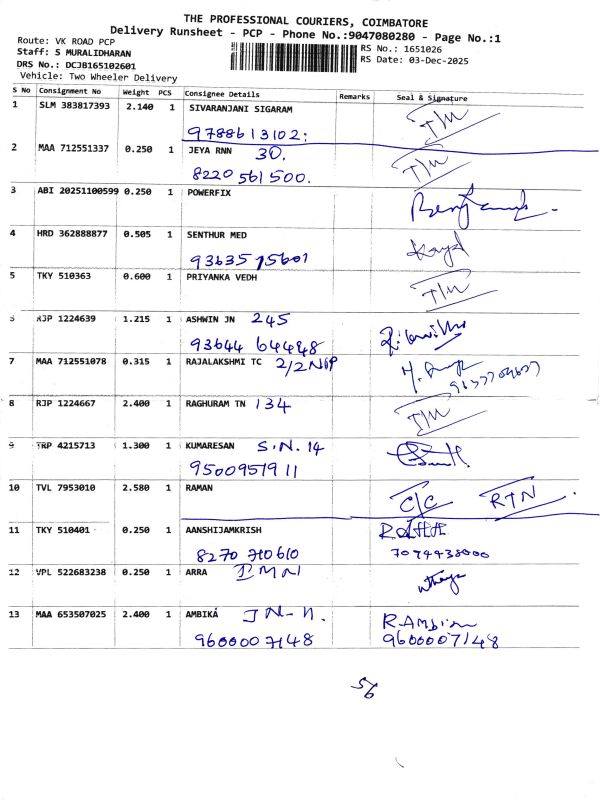 THE PROFESSIONAL COURIERS, COIMBATORE
Delivery Runsheet - PCP - Phone No.:9047080280 - Page No.:1
Route: VK ROAD PCP
Staff: S MURALIDHARAN
DRS No.: DCJB165102601
Vehicle: Two Wheeler Delivery
RS No.: 1651026
RS Date: 03-Dec-2025
S No Consignment No Weight PCS Consignee Details Remarks Seal & Signature
1 SLM 383817393 2.140 1 SIVARANJANI SIGARAM T/M
9788613102:
2 MAA 712551337 0.250 1 JEYA RNN 30. T/M
8220 561 500.
3 ABI 20251100599 0.250 1 POWERFIX
4 HRD 362888877 0.505 1 SENTHUR MED
93635 75601
5 TKY 510363 0.600 1 PRIYANKA VEDH T/M
6 RJP 1224639 1.215 1 ASHWIN JN 245
93644 64448
7 MAA 712551078 0.315 1 RAJALAKSHMI TC
8 RJP 1224667 2.400 1 RAGHURAM TN 134 T/M
9 TRP 4215713 1.300 1 KUMARESAN S.N. 14
9500957911
10 TVL 7953010 2.580 1 RAMAN C/C RTN
11 TKY 510401 0.250 1 AANSHIJAMKRISH
8270 710610
12 VPL 522683238 0.250 1 ARRA
13 MAA 653507025 2.400 1 AMBIKA
9600007148 9600007148